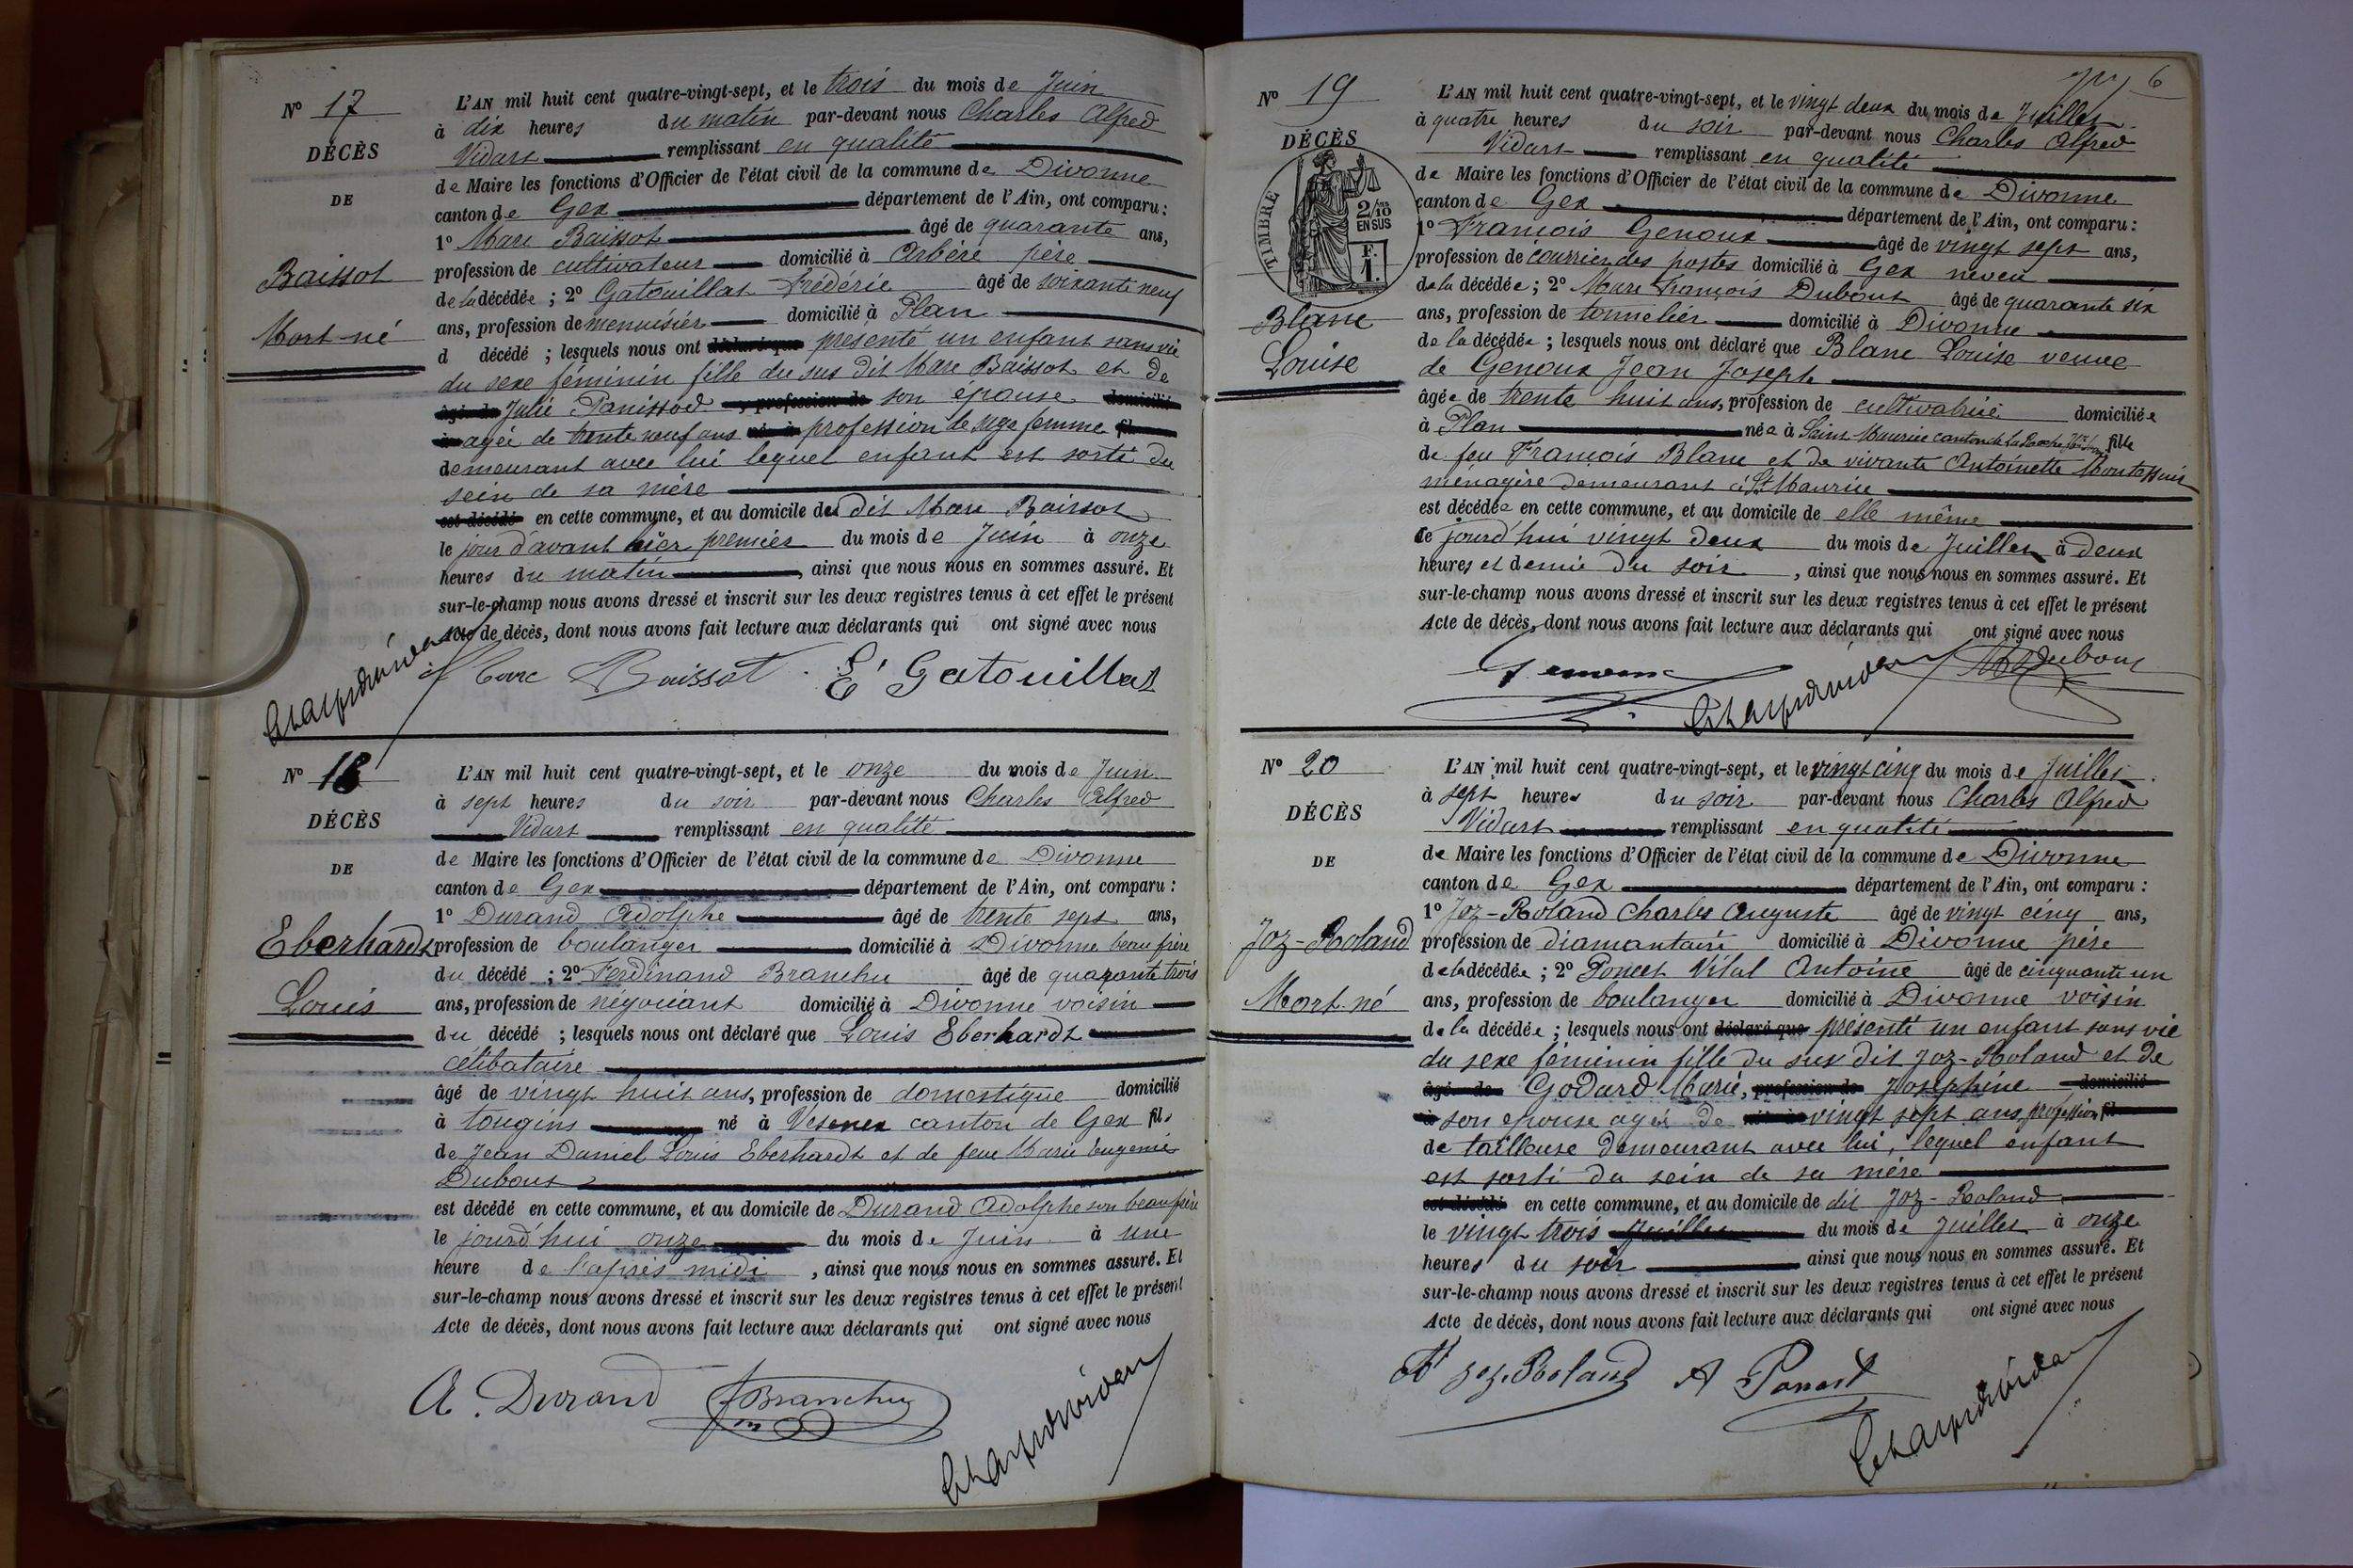 N° 17
DÉCÈS
DE
Baissot
Mort-né
L'AN mil huit cent quatre-vingt-sept, et le trois du mois de Juin
à dix heures du matin par-devant nous Charles Alfred
Vidart remplissant en qualité
de Maire les fonctions d'Officier de l'état civil de la commune de Divonne
canton de Gex département de l'Ain, ont comparu :
1° Marc Baissot âgé de quarante ans,
profession de cultivateur domicilié à Arbère père
de la décédée ; 2° Gatouillat Frédéric âgé de soixante neuf
ans, profession de menuisier domicilié à Plan
d décédé ; lesquels nous ont déclaré que présenté un enfant sans vie
du sexe féminin fille du sus dit Marc Baissot et de
âgé de Julie Panissod , profession de son épouse domicilié
à agée de trente neuf ans né à profession de sage femme fil
demeurant avec lui lequel enfant est sorti du
sein de sa mère
est décédé en cette commune, et au domicile du dit Marc Baissot
le jour d'avant hier premier du mois de Juin à onze
heures du matin , ainsi que nous nous en sommes assuré. Et
sur-le-champ nous avons dressé et inscrit sur les deux registres tenus à cet effet le présent
Acte de décès, dont nous avons fait lecture aux déclarants qui ont signé avec nous
Marc Baissot Gatouillat
N° 18
DÉCÈS
DE
Eberhardt
Louis
L'AN mil huit cent quatre-vingt-sept, et le onze du mois de Juin
à sept heures du soir par-devant nous Charles Alfred
Vidart remplissant en qualité
de Maire les fonctions d'Officier de l'état civil de la commune de Divonne
canton de Gex département de l'Ain, ont comparu :
1° Durand Adolphe âgé de trente sept ans,
profession de boulanger domicilié à Divonne beau frère
du décédé ; 2° Ferdinand Branchu âgé de quarante trois
ans, profession de négociant domicilié à Divonne voisin
du décédé ; lesquels nous ont déclaré que Louis Eberhardt
célibataire
âgé de vingt huit ans, profession de domestique domicilié
à tougins né à Vesenex canton de Gex fils
de Jean Daniel Louis Eberhardt et de feue Marie Eugenie
Dubout
est décédé en cette commune, et au domicile de Durand Adolphe son beau frère
le jourd'hui onze du mois de Juin à une
heure de l'après midi , ainsi que nous nous en sommes assuré. Et
sur-le-champ nous avons dressé et inscrit sur les deux registres tenus à cet effet le présent
Acte de décès, dont nous avons fait lecture aux déclarants qui ont signé avec nous
A. Durand Branchu
6
N° 19
DÉCÈS
TIMBRE
2/10
EN SUS
F.
1.
Blanc
Louise
L'AN mil huit cent quatre-vingt-sept, et le vingt deux du mois de Juillet
à quatre heures du soir par-devant nous Charles Alfred
Vidart remplissant en qualité
de Maire les fonctions d'Officier de l'état civil de la commune de Divonne
canton de Gex département de l'Ain, ont comparu :
1° François Genoux âgé de vingt sept ans,
profession de courrier des postes domicilié à Gex neveu
de la décédée ; 2° Marc François Dubout âgé de quarante six
ans, profession de tonnelier domicilié à Divonne
de la décédée ; lesquels nous ont déclaré que Blanc Louise veuve
de Genoux Jean Joseph
âgée de trente huit ans, profession de cultivatrice domiciliée
à Plan née à Saint Maurice canton de la Roche fille
de feu François Blanc et de vivante Antoinette Montessuis
ménagère demeurant à St Maurice
est décédée en cette commune, et au domicile de elle même
le jourd'hui vingt deux du mois de Juillet à deux
heures et demie du soir , ainsi que nous nous en sommes assuré. Et
sur-le-champ nous avons dressé et inscrit sur les deux registres tenus à cet effet le présent
Acte de décès, dont nous avons fait lecture aux déclarants qui ont signé avec nous
Dubout
N° 20
DÉCÈS
DE
Joz-Roland
Mort-né
L'AN mil huit cent quatre-vingt-sept, et le vingt cinq du mois de Juillet
à sept heures du soir par-devant nous Charles Alfred
Vidart remplissant en qualité
de Maire les fonctions d'Officier de l'état civil de la commune de Divonne
canton de Gex département de l'Ain, ont comparu :
1° Joz-Roland Charles Auguste âgé de vingt cinq ans,
profession de diamantaire domicilié à Divonne père
de la décédée ; 2° Poncet Vital Antoine âgé de cinquante un
ans, profession de boulanger domicilié à Divonne voisin
de la décédée ; lesquels nous ont déclaré que présenté un enfant sans vie
du sexe féminin fille du sus dit Joz-Roland et de
âgé de Godard Marie, profession de Josephine domicilié
à son épouse agée de né à vingt sept ans profession fil
de tailleuse demeurant avec lui, lequel enfant
est sorti du sein de sa mère
est décédé en cette commune, et au domicile de dit Joz-Roland
le vingt trois Juillet du mois de Juillet à onze
heures du soir ainsi que nous nous en sommes assuré. Et
sur-le-champ nous avons dressé et inscrit sur les deux registres tenus à cet effet le présent
Acte de décès, dont nous avons fait lecture aux déclarants qui ont signé avec nous
Joz-Roland A Poncet